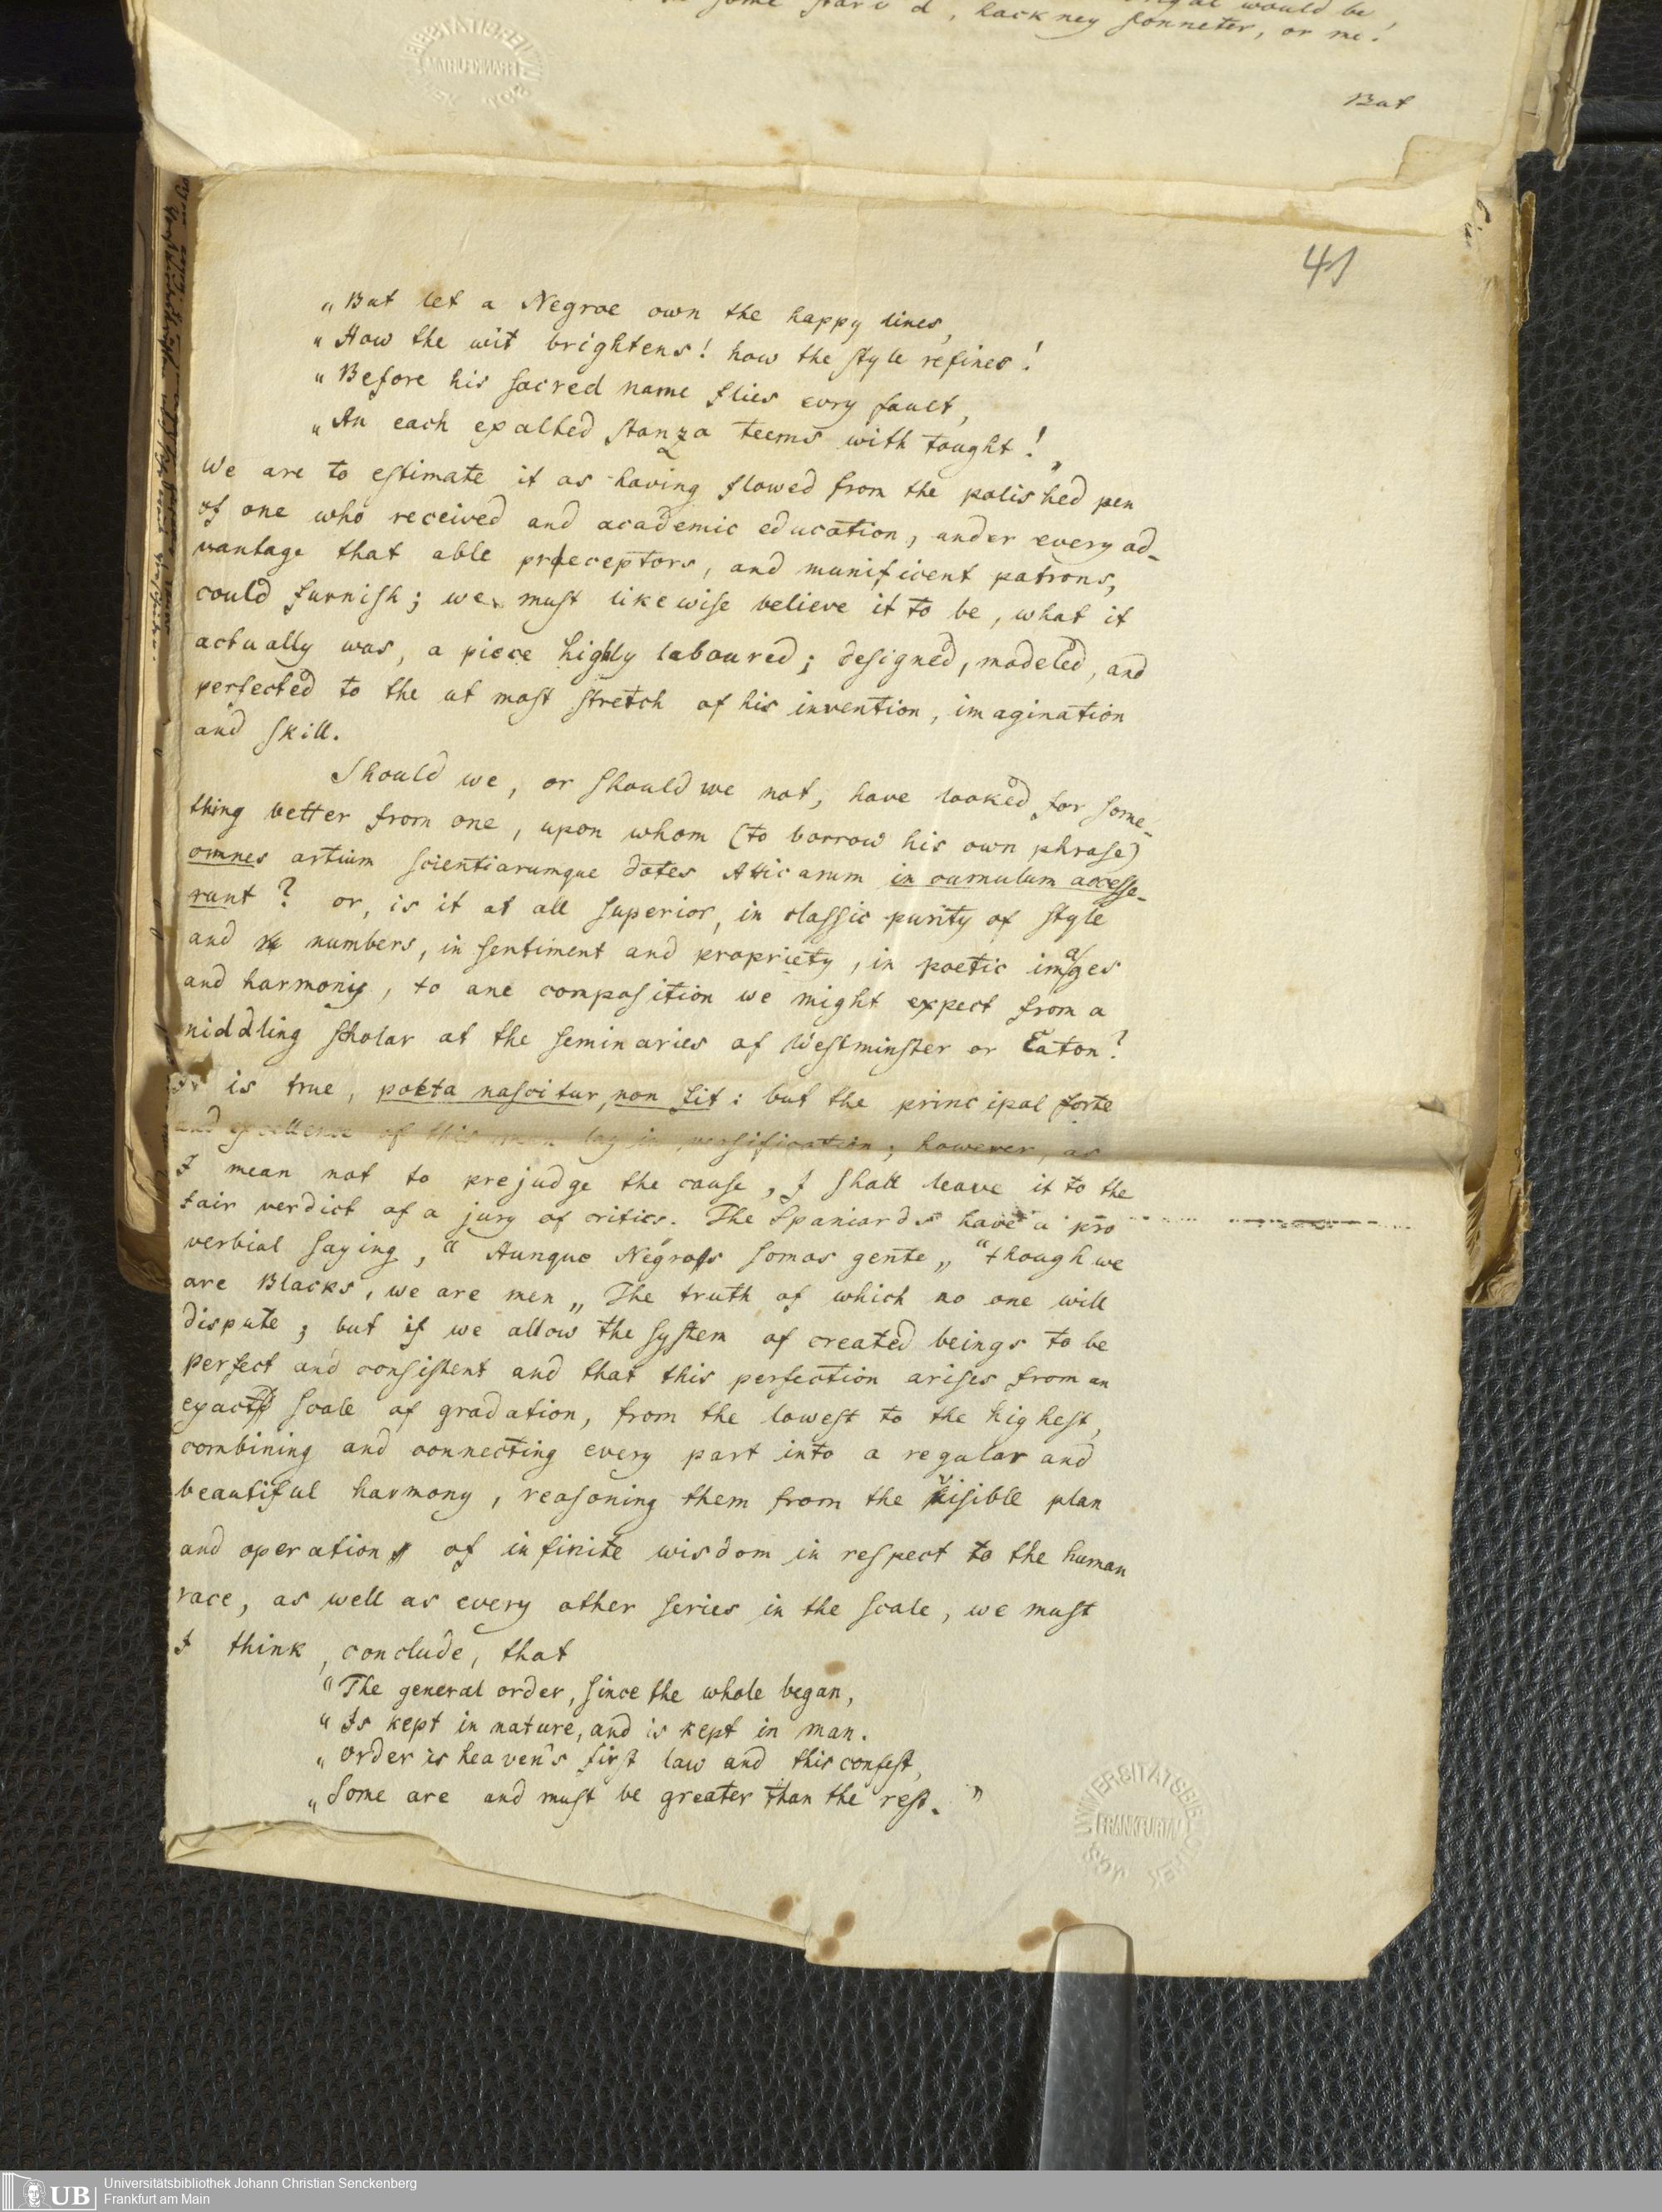 some starv'd, hackney sonneter, or me!
But
41
"But let a Negroe own the happy lines,
"How the wit brightens! how the style refines!
"Before his sacred name flies evry fault,
"An each exalted stanza teems with tought!"
We are to estimate it as having flowed from the polished pen
of one who received and academic education, under every ad-
vantage that able preceptors, and munificent patrons,
could furnish; we must likewise believe it to be, what it
actually was, a piece highly laboured; designed, modeled, and
perfected to the ut most stretch of his invention, imagination
and skill.
Should we, or should we not, have looked for some-
thing better from one, upon whom (to borrow his own phrase)
omnes artium scientiarumque dotes Atticarum in cumulum accesse-
runt? or, is it at all superior, in classic purity of style
and numbers, in sentiment and propriety, in poetic images
and harmony, to ane composition we might expect from a
middling scholar at the seminaries of Westminster or Eaton?
It is true, poeta nascitur, non fit: but the principal forte
and excellence of this man lay in versification; however, as
I mean not to prejudge the cause, I shall leave it to the
fair verdict of a jury of critics. The Spaniards have a pro
verbial saying, "Aunque Negros somos gente" "though we
are Blacks, we are men" The truth of which no one will
dispute; but if we allow the system of created beings to be
perfect and consistent and that this perfection arises from an
exact scale of gradation, from the lowest to the highest,
combining and connecting every part into a regular and
beautiful harmony, reasoning them from the visible plan
and operation of infinite wisdom in respect to the human
race, as well as every other series in the scale, we must
I think, conclude, that
"The general order, since the whole began,
"Is kept in nature, and is kept in man.
"Order is heaven's first law and this confest,
"Some are and must be greater than the rest."
FRANKFURT/M
UB
Universitätsbibliothek Johann Christian Senckenberg
Frankfurt am Main